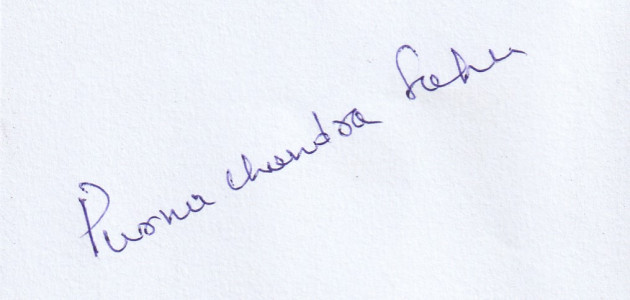 Purna chandra Sahu